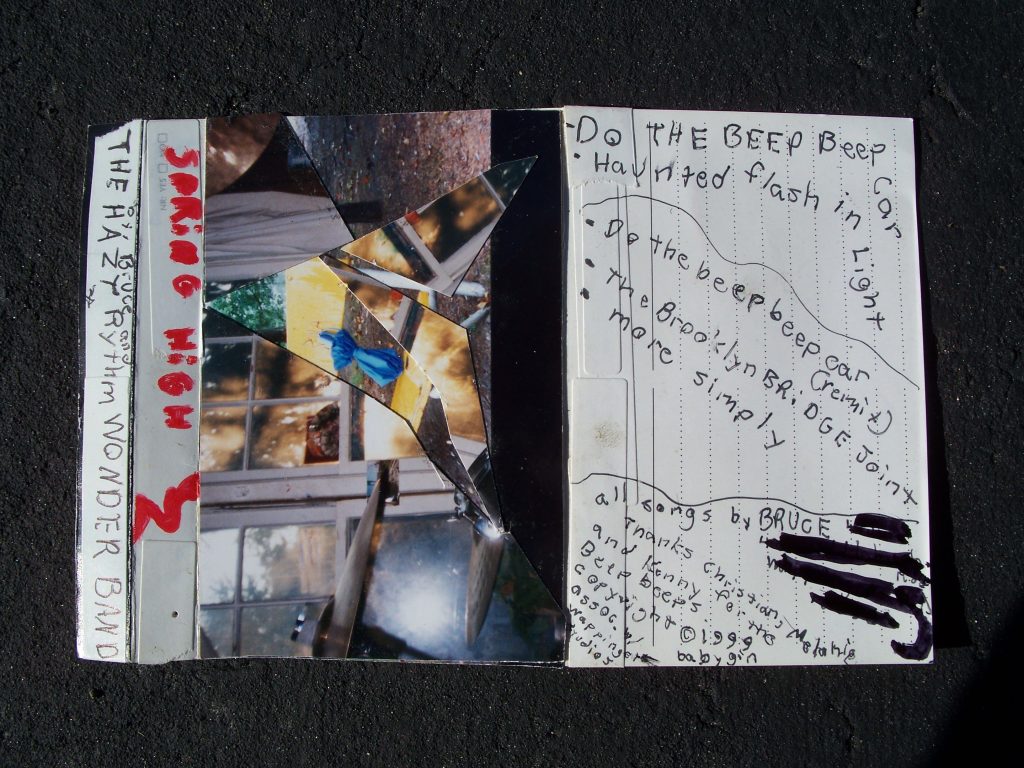 THE HAZY RYTHM WONDER BAND
BRUCE and
SPRiNG HiGH
3
NR: YES
- DO THE BEEP Beep Car
• Haunted flash in Light
• Do the beep beep car (remix)
• The Brooklyn BRiDGE Joint
more simply
all songs by BRUCE
Thanks Christian, Melanie
and Kenny for the
Beep beeps
copyright © 1999
babygin